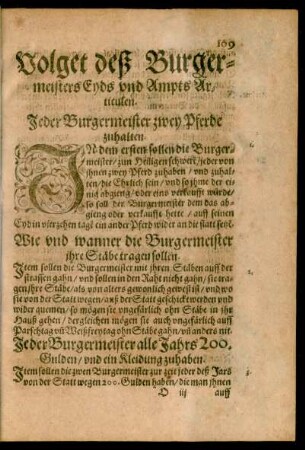 109
Volget deß Burger-
meisters Eyds vnd Ampts Ar-
ticulen.
Jeder Burgermeister zwey Pferde
zuhalten.
IN dem ersten sollen die Burger-
meister/ zum Heiligen schwern/ jeder von
jhnen zwey Pferd zuhaben/ vnd zuhal-
ten/ die Ehrlich sein/ vnd so jhme der ei-
nes abgieng/ oder eins verkaufft würde/
so soll der Burgermeister dem das ab-
gieng oder verkaufft hette/ auff seinen
Eyd in vierzehen tagen ein ander Pferd wider an die statt setzen.
Wie vnd wanner die Burgermeister
jhre Stäbe tragen sollen.
Item sollen die Burgermeister mit jhren Stäben auff der
strassen gahn/ vnd sollen in den Raht nicht gahn/ sie tra-
gen jhre Stäbe/ als von alters gewonlich gewest ist/ vnd wo
sie von der Statt wegen/ auß der Statt geschickt werden vnd
wider quemen/ so mögen sie vngefärlich ohn Stäbe in jhr
Hauß gehen/ dergleichen mögen sie auch vngefärlich auff
Parschtag vñ Weissfreytag ohn Stäbe gahn/ vñ anders nit.
Jeder Burgermeister alle Jahrs 200.
Gulden/ vnd ein Kleidung zuhaben.
Item sollen die zwen Burgermeister zur zeit jeder deß Jars
von der Statt wegen 200. Gulden haben/ die man jhnen
O iij auff